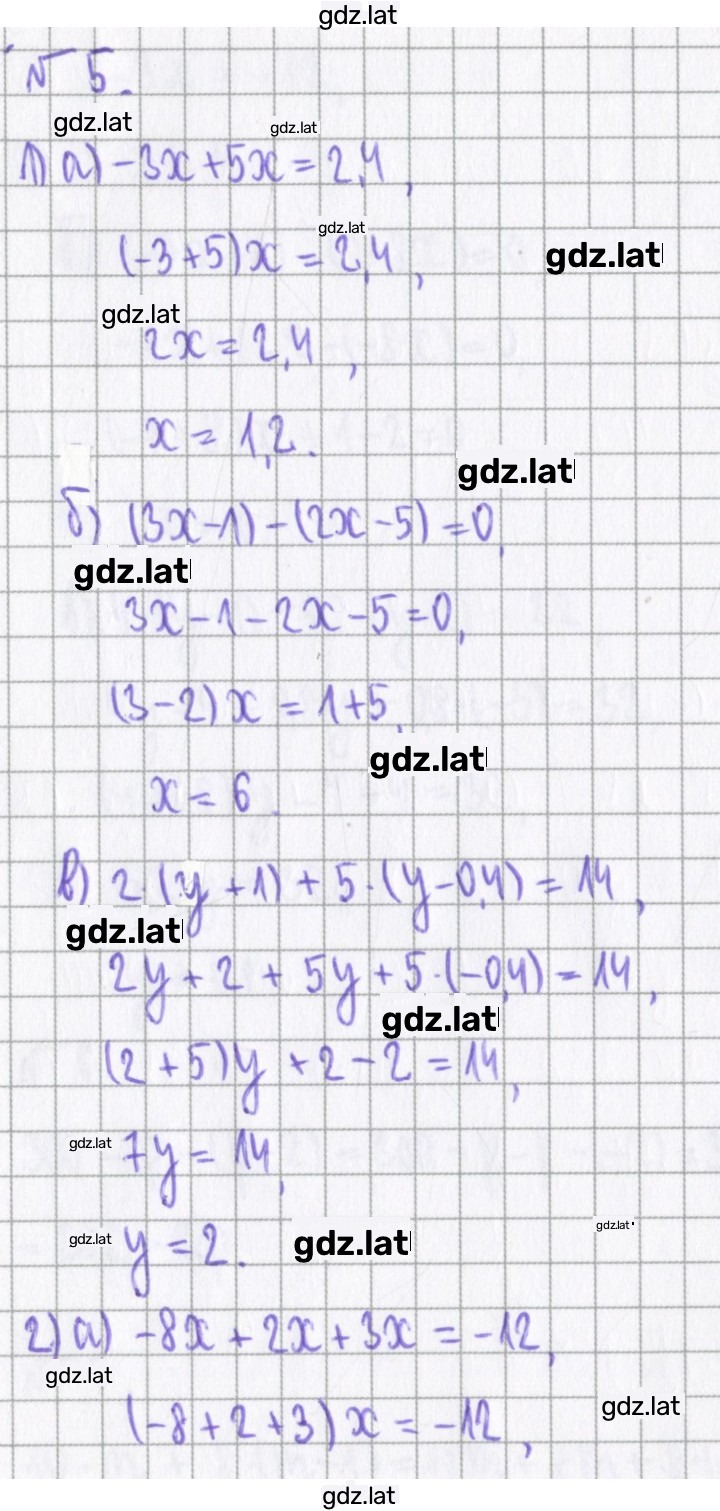 gdz.lat
№ 5.
gdz.lat gdz.lat
1) а) -3x + 5x = 2,4,
gdz.lat
(-3+5)x = 2,4, gdz.lat
gdz.lat
2x = 2,4,
x = 1,2.
gdz.lat
б) (3x-1) - (2x-5) = 0,
gdz.lat
3x-1-2x-5=0,
(3-2)x = 1+5,
gdz.lat
x = 6.
в) 2(y+1) + 5·(y-0,4) = 14,
gdz.lat
2y + 2 + 5y + 5·(-0,4) = 14,
gdz.lat
(2+5)y + 2 - 2 = 14,
gdz.lat 7y = 14,
gdz.lat
gdz.lat y = 2. gdz.lat
2) а) -8x + 2x + 3x = -12,
gdz.lat
(-8+2+3)x = -12, gdz.lat
gdz.lat